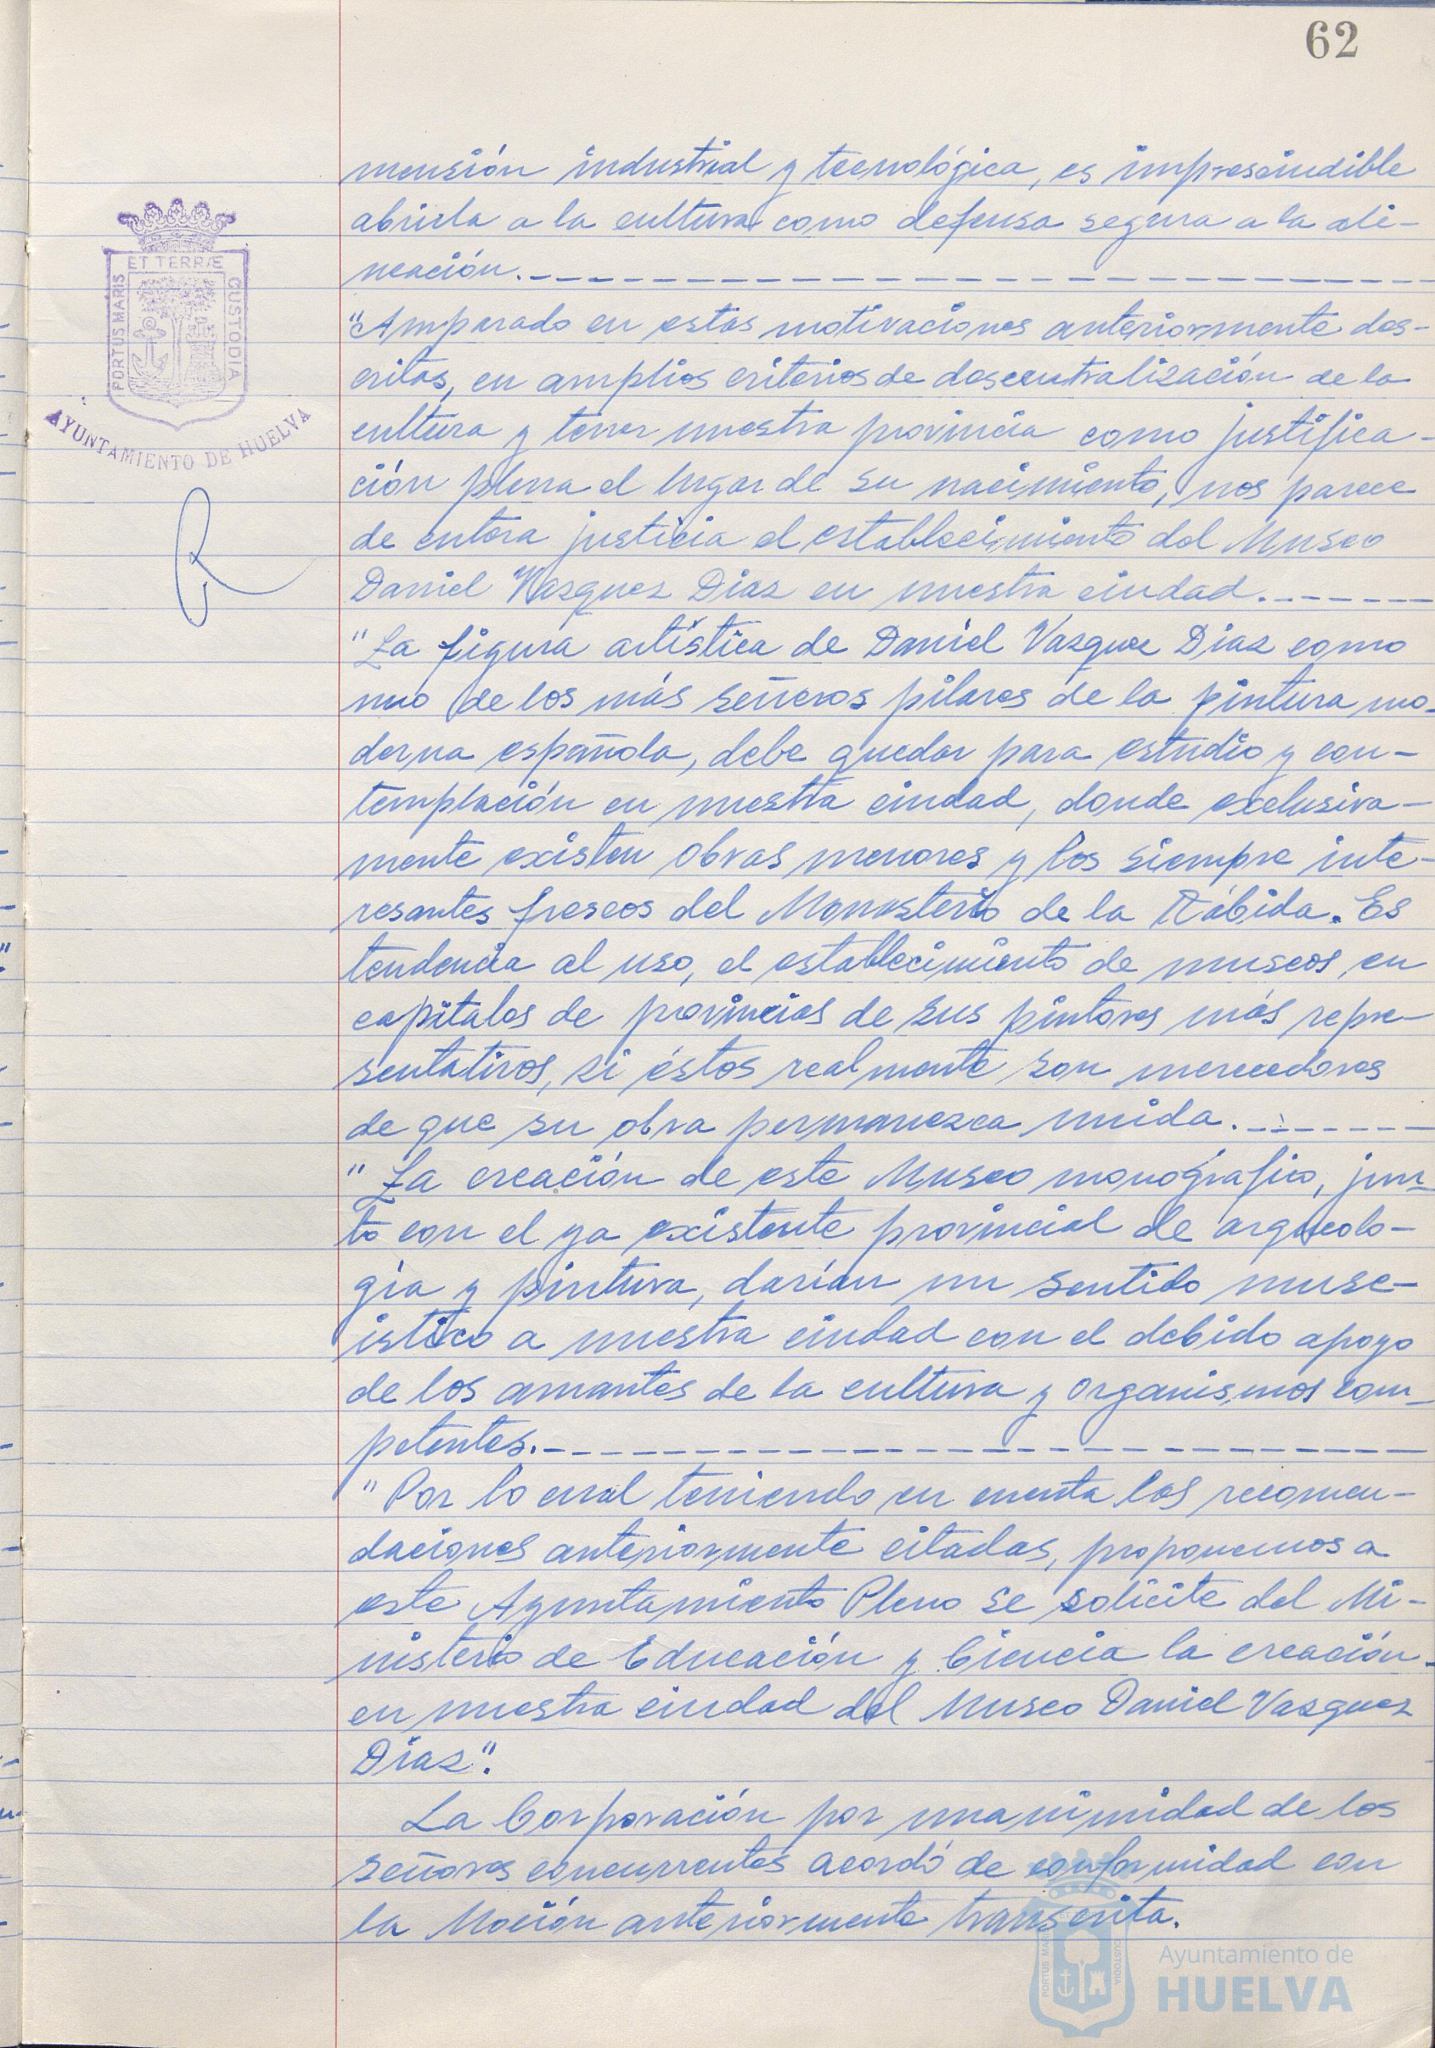 62
mensión industrial y tecnológica, es imprescindible
abrirla a la cultura como defensa segura a la ali-
neación.
"Amparado en estas motivaciones anteriormente des-
critas, en amplios criterios de descentralización de la
cultura y tener nuestra provincia como justifica-
ción plena el lugar de su nacimiento, nos parece
de entera justicia el establecimiento del Museo
Daniel Vazquez Diaz en nuestra ciudad.
"La figura artística de Daniel Vazquez Diaz como
uno de los más señeros pilares de la pintura mo-
derna española, debe quedar para estudio y con-
templación en nuestra ciudad, donde exclusiva-
mente existen obras menores y los siempre inte-
resantes frescos del Monasterio de la Rábida. Es
tendencia al uso, el establecimiento de museos, en
capitales de provincias de sus pintores más repre-
sentativos, si éstos realmente son merecedores
de que su obra permanezca unida.
"La creación de este Museo monográfico, jun-
to con el ya existente provincial de arqueolo-
gía y pintura, darían un sentido muse-
ístico a nuestra ciudad con el debido apoyo
de los amantes de la cultura y organismos com-
petentes.
"Por lo cual teniendo en cuenta las recomen-
daciones anteriormente citadas, proponemos a
este Ayuntamiento Pleno se solicite del Mi-
nisterio de Educación y Ciencia la creación
en nuestra ciudad del Museo Daniel Vazquez
Díaz".
La Corporación por unanimidad de los
señores concurrentes acordó de conformidad con
la Moción anteriormente transcrita.
PORTUS MARIS
ET TERRÆ
CUSTODIA
AYUNTAMIENTO DE HUELVA
Ayuntamiento de
HUELVA